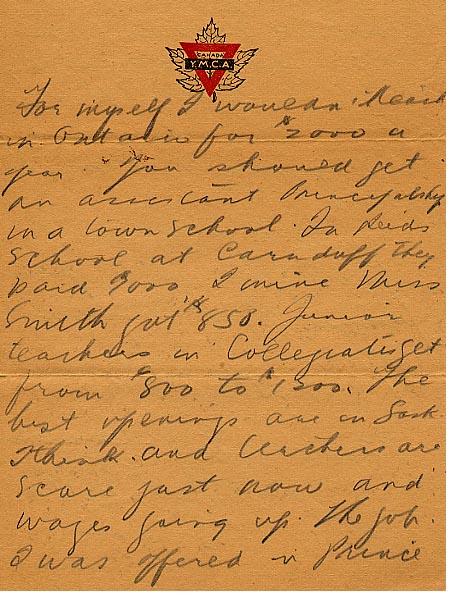 CANADA
Y.M.C.A.
For myself I wouldn't teach
in Ontario for $2000 a
year. You should get
an assistant Principalship
in a town school. In Reids
School at Carnduff they
paid 900 I mine Miss
Smith got $850. Junior
teachers in Collegiates get
from $800 to $1,200. The
best openings are in Sask
I think. and teachers are
scare just now and
wages going up. The job
I was offered in Prince